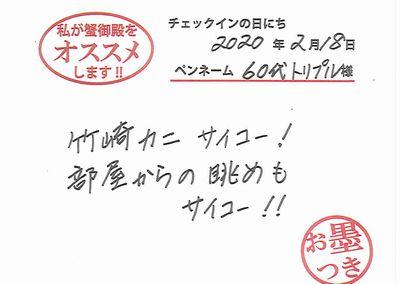 私が蟹御殿を
オススメ
します!!
チェックインの日にち
2020年2月18日
ペンネーム 60代トリプル様
竹崎カニ サイコー!
部屋からの眺めも
サイコー!!
お墨
つき